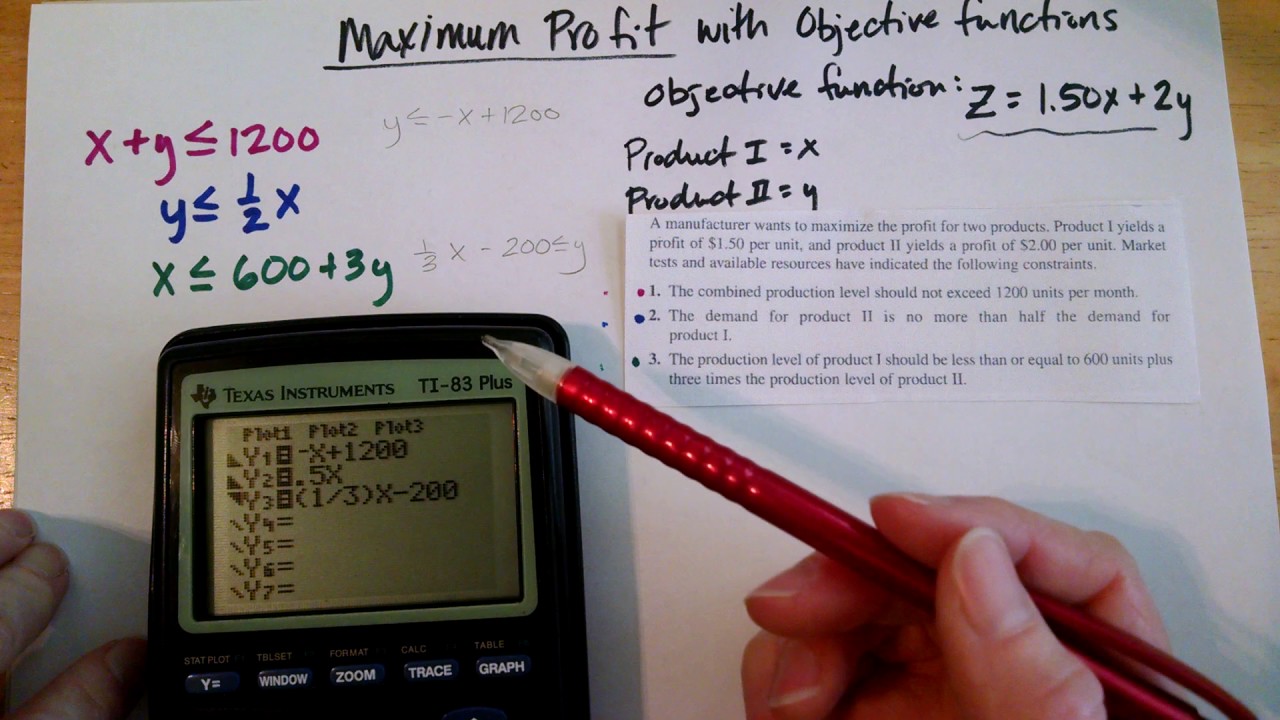 Maximum Profit with Objective functions
objective function: Z = 1.50x + 2y
x + y ≤ 1200
y ≤ -x + 1200
Product I = x
y ≤ 1/2 x
Product II = y
x ≤ 600 + 3y
1/3 x - 200 ≤ y
A manufacturer wants to maximize the profit for two products. Product I yields a
profit of $1.50 per unit, and product II yields a profit of $2.00 per unit. Market
tests and available resources have indicated the following constraints.
1. The combined production level should not exceed 1200 units per month.
2. The demand for product II is no more than half the demand for
product I.
3. The production level of product I should be less than or equal to 600 units plus
three times the production level of product II.
TEXAS INSTRUMENTS TI-83 Plus
Plot1 Plot2 Plot3
Y1=-X+1200
Y2=.5X
Y3=(1/3)X-200
Y4=
Y5=
Y6=
Y7=
STAT PLOT TBLSET FORMAT CALC TABLE
Y= WINDOW ZOOM TRACE GRAPH